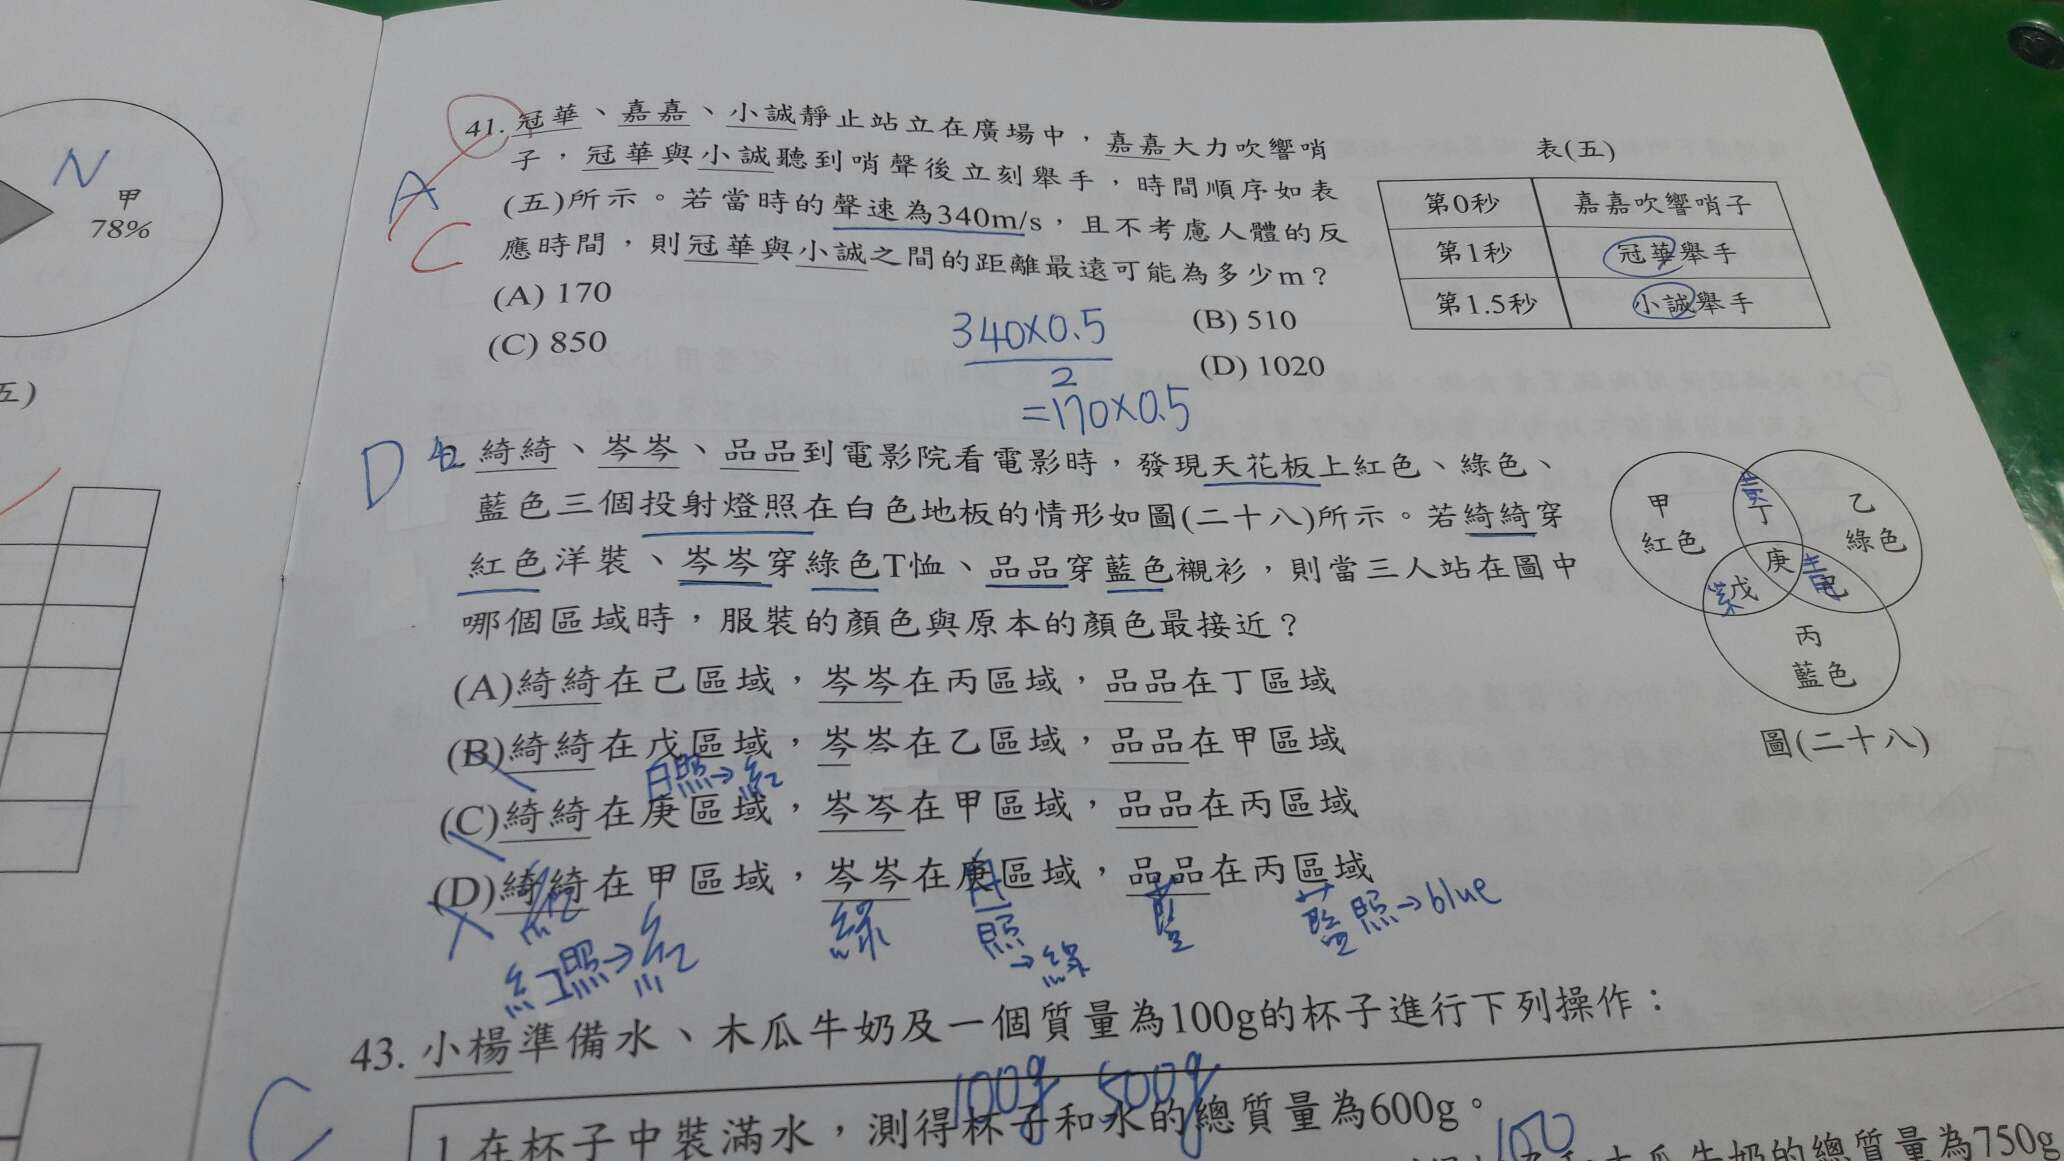 N
甲
78%
五)
A
C
41. 冠華、嘉嘉、小誠靜止站立在廣場中,嘉嘉大力吹響哨
子,冠華與小誠聽到哨聲後立刻舉手,時間順序如表
(五)所示。若當時的聲速為340m/s,且不考慮人體的反
應時間,則冠華與小誠之間的距離最遠可能為多少m?
(A) 170
(B) 510
(C) 850
(D) 1020
340×0.5
2
=170×0.5
表(五)
第0秒 嘉嘉吹響哨子
第1秒 冠華舉手
第1.5秒 小誠舉手
D
42 綺綺、岑岑、品品到電影院看電影時,發現天花板上紅色、綠色、
藍色三個投射燈照在白色地板的情形如圖(二十八)所示。若綺綺穿
紅色洋裝、岑岑穿綠色T恤、品品穿藍色襯衫,則當三人站在圖中
哪個區域時,服裝的顏色與原本的顏色最接近?
(A)綺綺在己區域,岑岑在丙區域,品品在丁區域
(B)綺綺在戊區域,岑岑在乙區域,品品在甲區域
白照→紅
(C)綺綺在庚區域,岑岑在甲區域,品品在丙區域
(D)綺綺在甲區域,岑岑在庚區域,品品在丙區域
紅
紅照→紅
綠
白
照
→綠
藍
藍照→blue
甲
紅色
丁
乙
綠色
庚
紫
戊
青
己
丙
藍色
圖(二十八)
C
43. 小楊準備水、木瓜牛奶及一個質量為100g的杯子進行下列操作:
100g 500g
1.在杯子中裝滿水,測得杯子和水的總質量為600g。
100
木瓜牛奶的總質量為750g